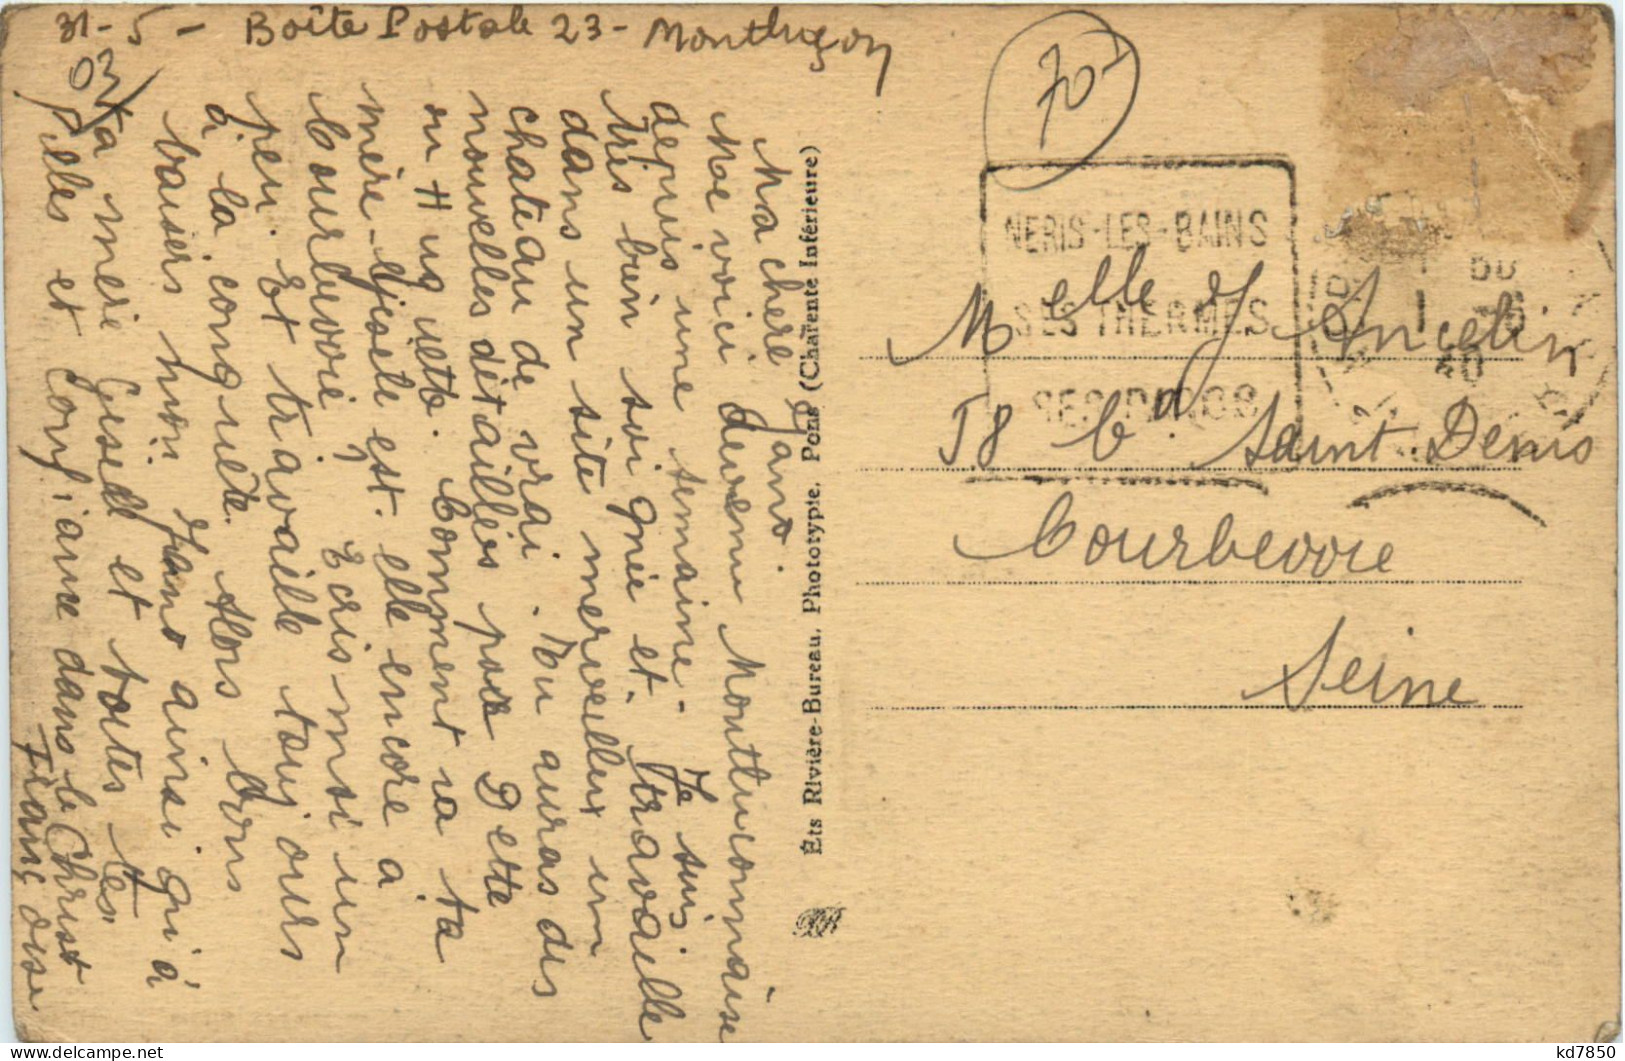 31-5- Boîte Postale 23- Montluçon
03
Ma chère Jano.
Me voici devenu Montluconnaise
depuis une semaine. Je suis
très bien soignée et travaille
dans un site merveilleux un
chateau de vrai. Tu auras des
nouvelles détaillées par Dette
ou Huguette. Comment va ta
mère. Gisèle est-elle encore à
Courbevoie? Ecris-moi un
peu. Et travaille toujours
à la conquête. Alors bons
baisers mon Jano ainsi qu'à
ta mère Gisèle et toutes les
filles et confiance dans le Christ
Françoise
Éts Rivière-Bureau, Phototypie, Pons (Charente Inférieure)
70
NERIS-LES-BAINS
SES THERMES
SES PARCS
40
Melle J Ancelin
58 bd Saint-Denis
Courbevoie
Seine
kd7850